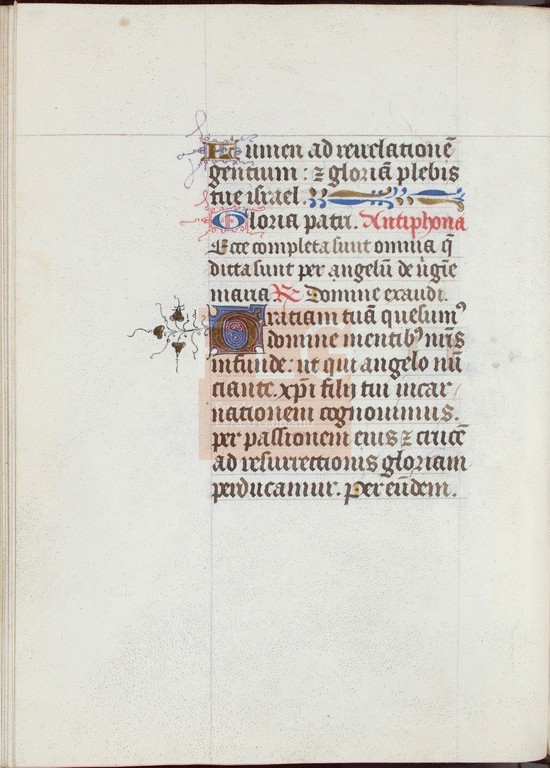 Lumen ad reuelationē
gentium : ꝛ gloriā plebis
tue israel.
Gloria patri. Antiphona
Ecce completa sunt omnia q̄
dicta sunt per angelū de ūgīe
maria ℟ Domine exaudi.
Gratiam tuā quesumꝰ
domine mentibꝰ nr̄is
infunde: ut qui angelo nū
ciante. xp̄i filij tui incar
nationem cognouimus.
per passionem eius ꝛ crucē
ad resurrectionis gloriam
perducamur. Per eūdem.